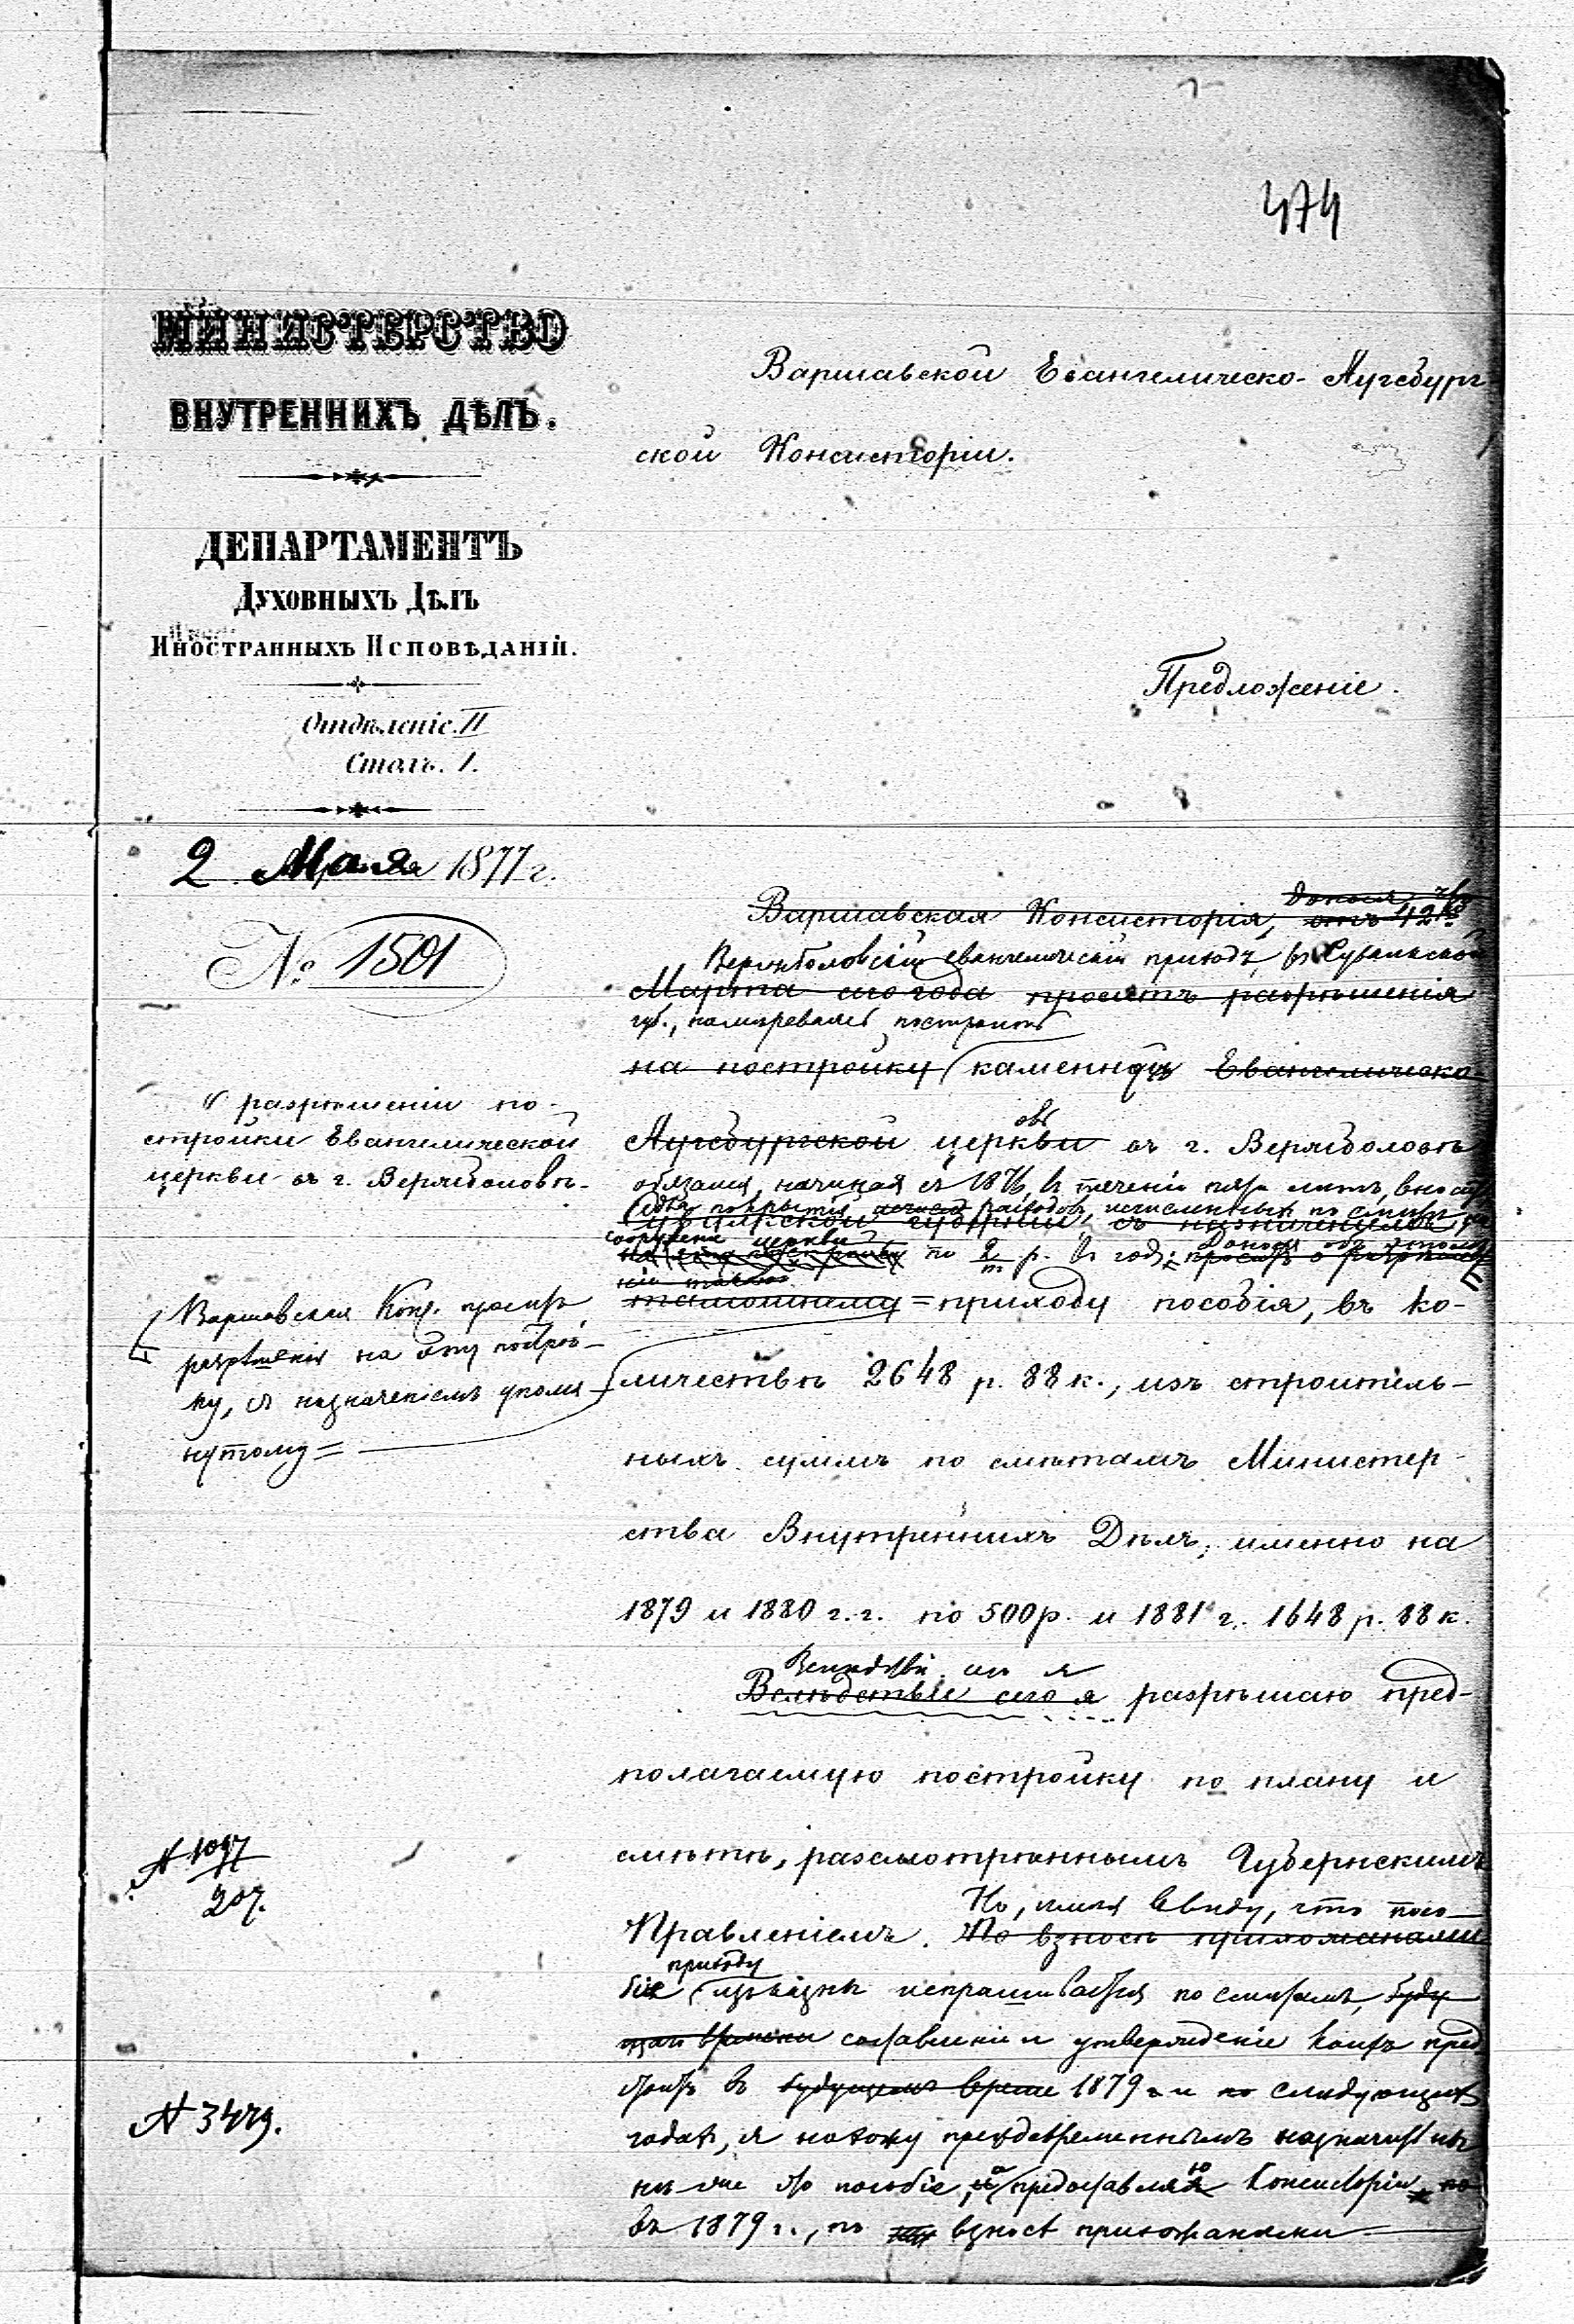 474
МИНИСТЕРСТВО
ВНУТРЕННИХЪ ДѢЛЪ.
ДЕПАРТАМЕНТЪ
ДУХОВНЫХЪ ДѢЛЪ
ИНОСТРАННЫХЪ ИСПОВѢДАНІЙ.
Отдѣленіе. II
Столъ. 1.
2 Мая 1877 г.
№ 1501
О разрѣшеніи по-
стройки Евангелической
церкви въ г. Вержболовѣ.
Варшавская Конс. проситъ
разрѣшенія на эту построй-
ку, съ назначеніемъ упомя-
нутому =
№ 1047
207.
№ 3479.
Варшавской Евангелическо-Аугсбург
ской Консисторіи.
Предложеніе.
донося, что
Варшавская Консисторія, отъ 42
Вержболовскій евангелическій приходъ, въ Сувалкской
Марта сего года проситъ разрѣшенія
губ., намѣреваясь построить
на постройку каменную Евангелическо
Аугсбургской церкви въ г. Вержболовѣ
обязался, начиная съ 1876, въ теченіи пяти лѣтъ, вносить
для покрытія расходовъ, исчисленныхъ по смѣтѣ на
Сувалкской губерніи, съ назначеніемъ
сооруженіе церкви Донося объ этомъ
по 2 р. въ годъ; проситъ о разрѣше
ніи
тамошнему = приходу пособія, въ ко-
личествѣ 2648 р. 88 к., изъ строитель-
ныхъ суммъ по смѣтамъ Министер-
ства Внутреннихъ Дѣлъ, именно на
1879 и 1880 г.г. по 500 р. и 1881 г. 1648 р. 88 к.
Вслѣдствіе сего я
Вслѣдствіе сего я разрѣшаю пред-
полагаемую постройку по плану и
смѣтѣ, разсмотрѣннымъ Губернскимъ
Но, имѣя въ виду, что посо-
Правленіемъ. По взносѣ прихожанами
приходу
біе изъ казны испрашивается по смѣтамъ, буду
щаго времени составленіе и утвержденіе коихъ пред
стоитъ въ будущемъ время 1879 г. и по слѣдующихъ
годахъ, я нахожу преждевременнымъ назначить ны
нѣ же это пособіе, а предоставляю Консисторіи по
въ 1879 г., по взносѣ прихожанами